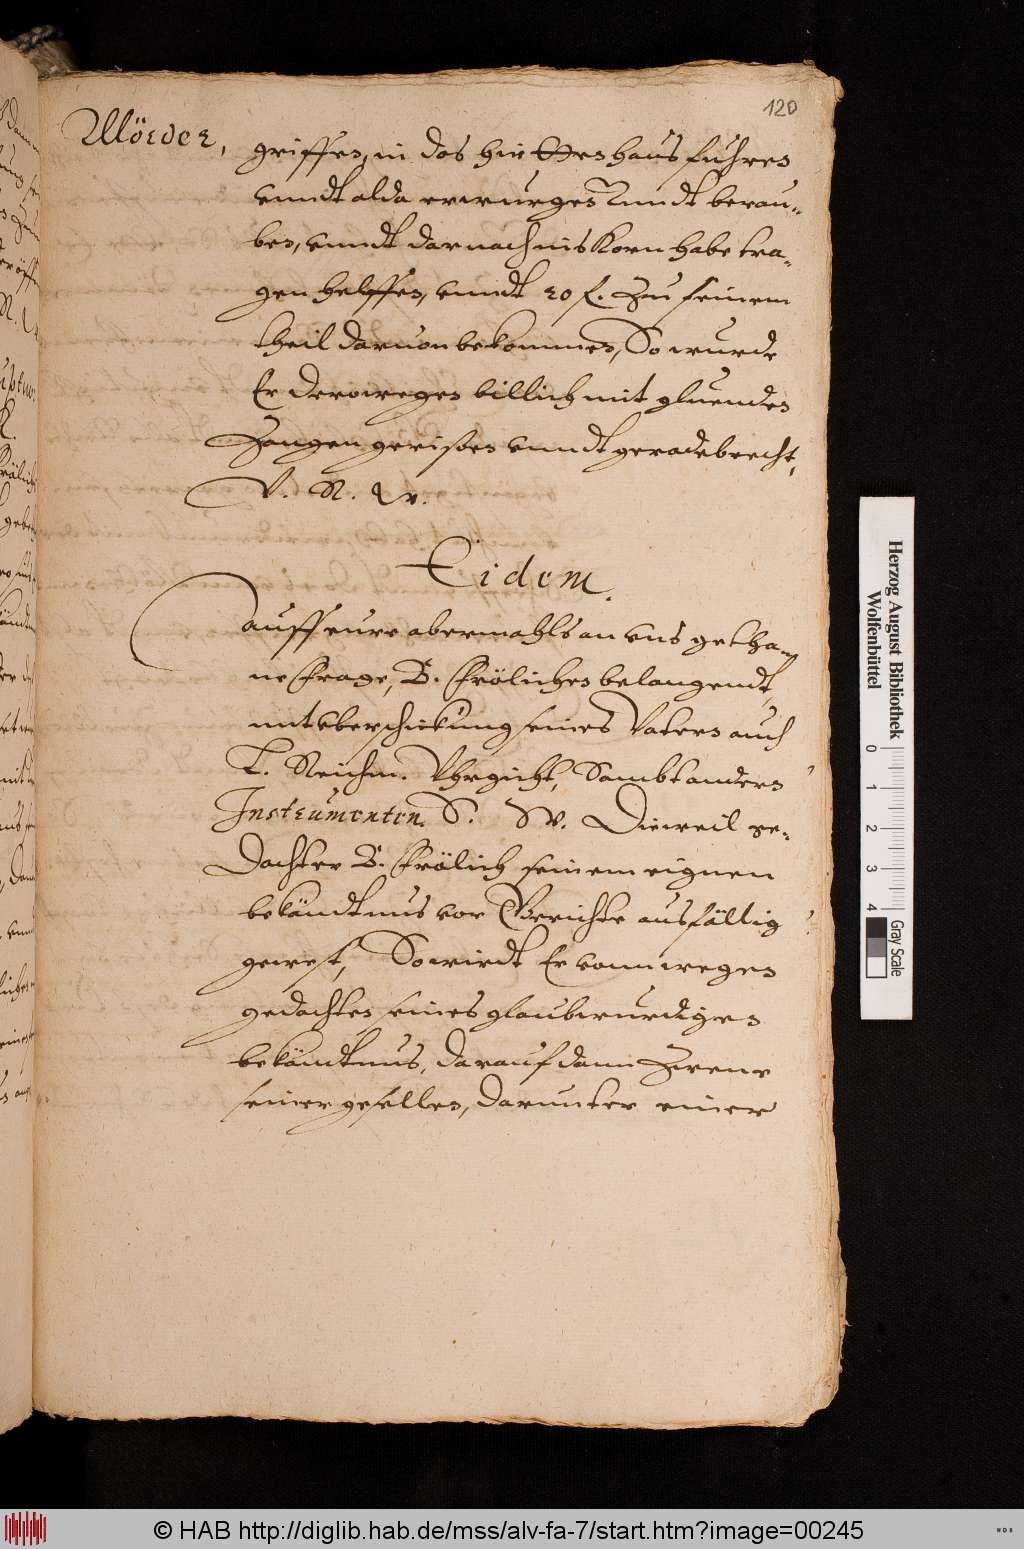 120
Mörder,
griffen, in das hirttenhaus fuhren
vnndt alda erwurgen vnndt berau-
ben, vnndt darnach ins Korn habe tra-
gen helffen, vnndt 20 f. Zu seinem
theil daruon bekommen, So wurde
Er derowegen billich mit gluenden
Zangen gerißen vnndt geradebrecht,
V. R. W.
Eidem.
auff eure abermahls an vns getha-
ne Frage, B. Frölichen belangendt,
mit vberschickung seines Vaters auch
T. Reichm. Vhrgicht, Sambt andern
Instrumenten. S. W. Dieweil ge-
dachter B. Frölich seinem eignen
bekändtnus vor Gerichte ausfällig
gewest, So wirdt Er vonn wegen
gedachten seines glaubwurdigen
bekändtnus, darauf dann Zwene
seiner gesellen, darunter einer
Herzog August Bibliothek
Wolfenbüttel
0 1 2 3 4
Gray Scale
© HAB http://diglib.hab.de/mss/alv-fa-7/start.htm?image=00245